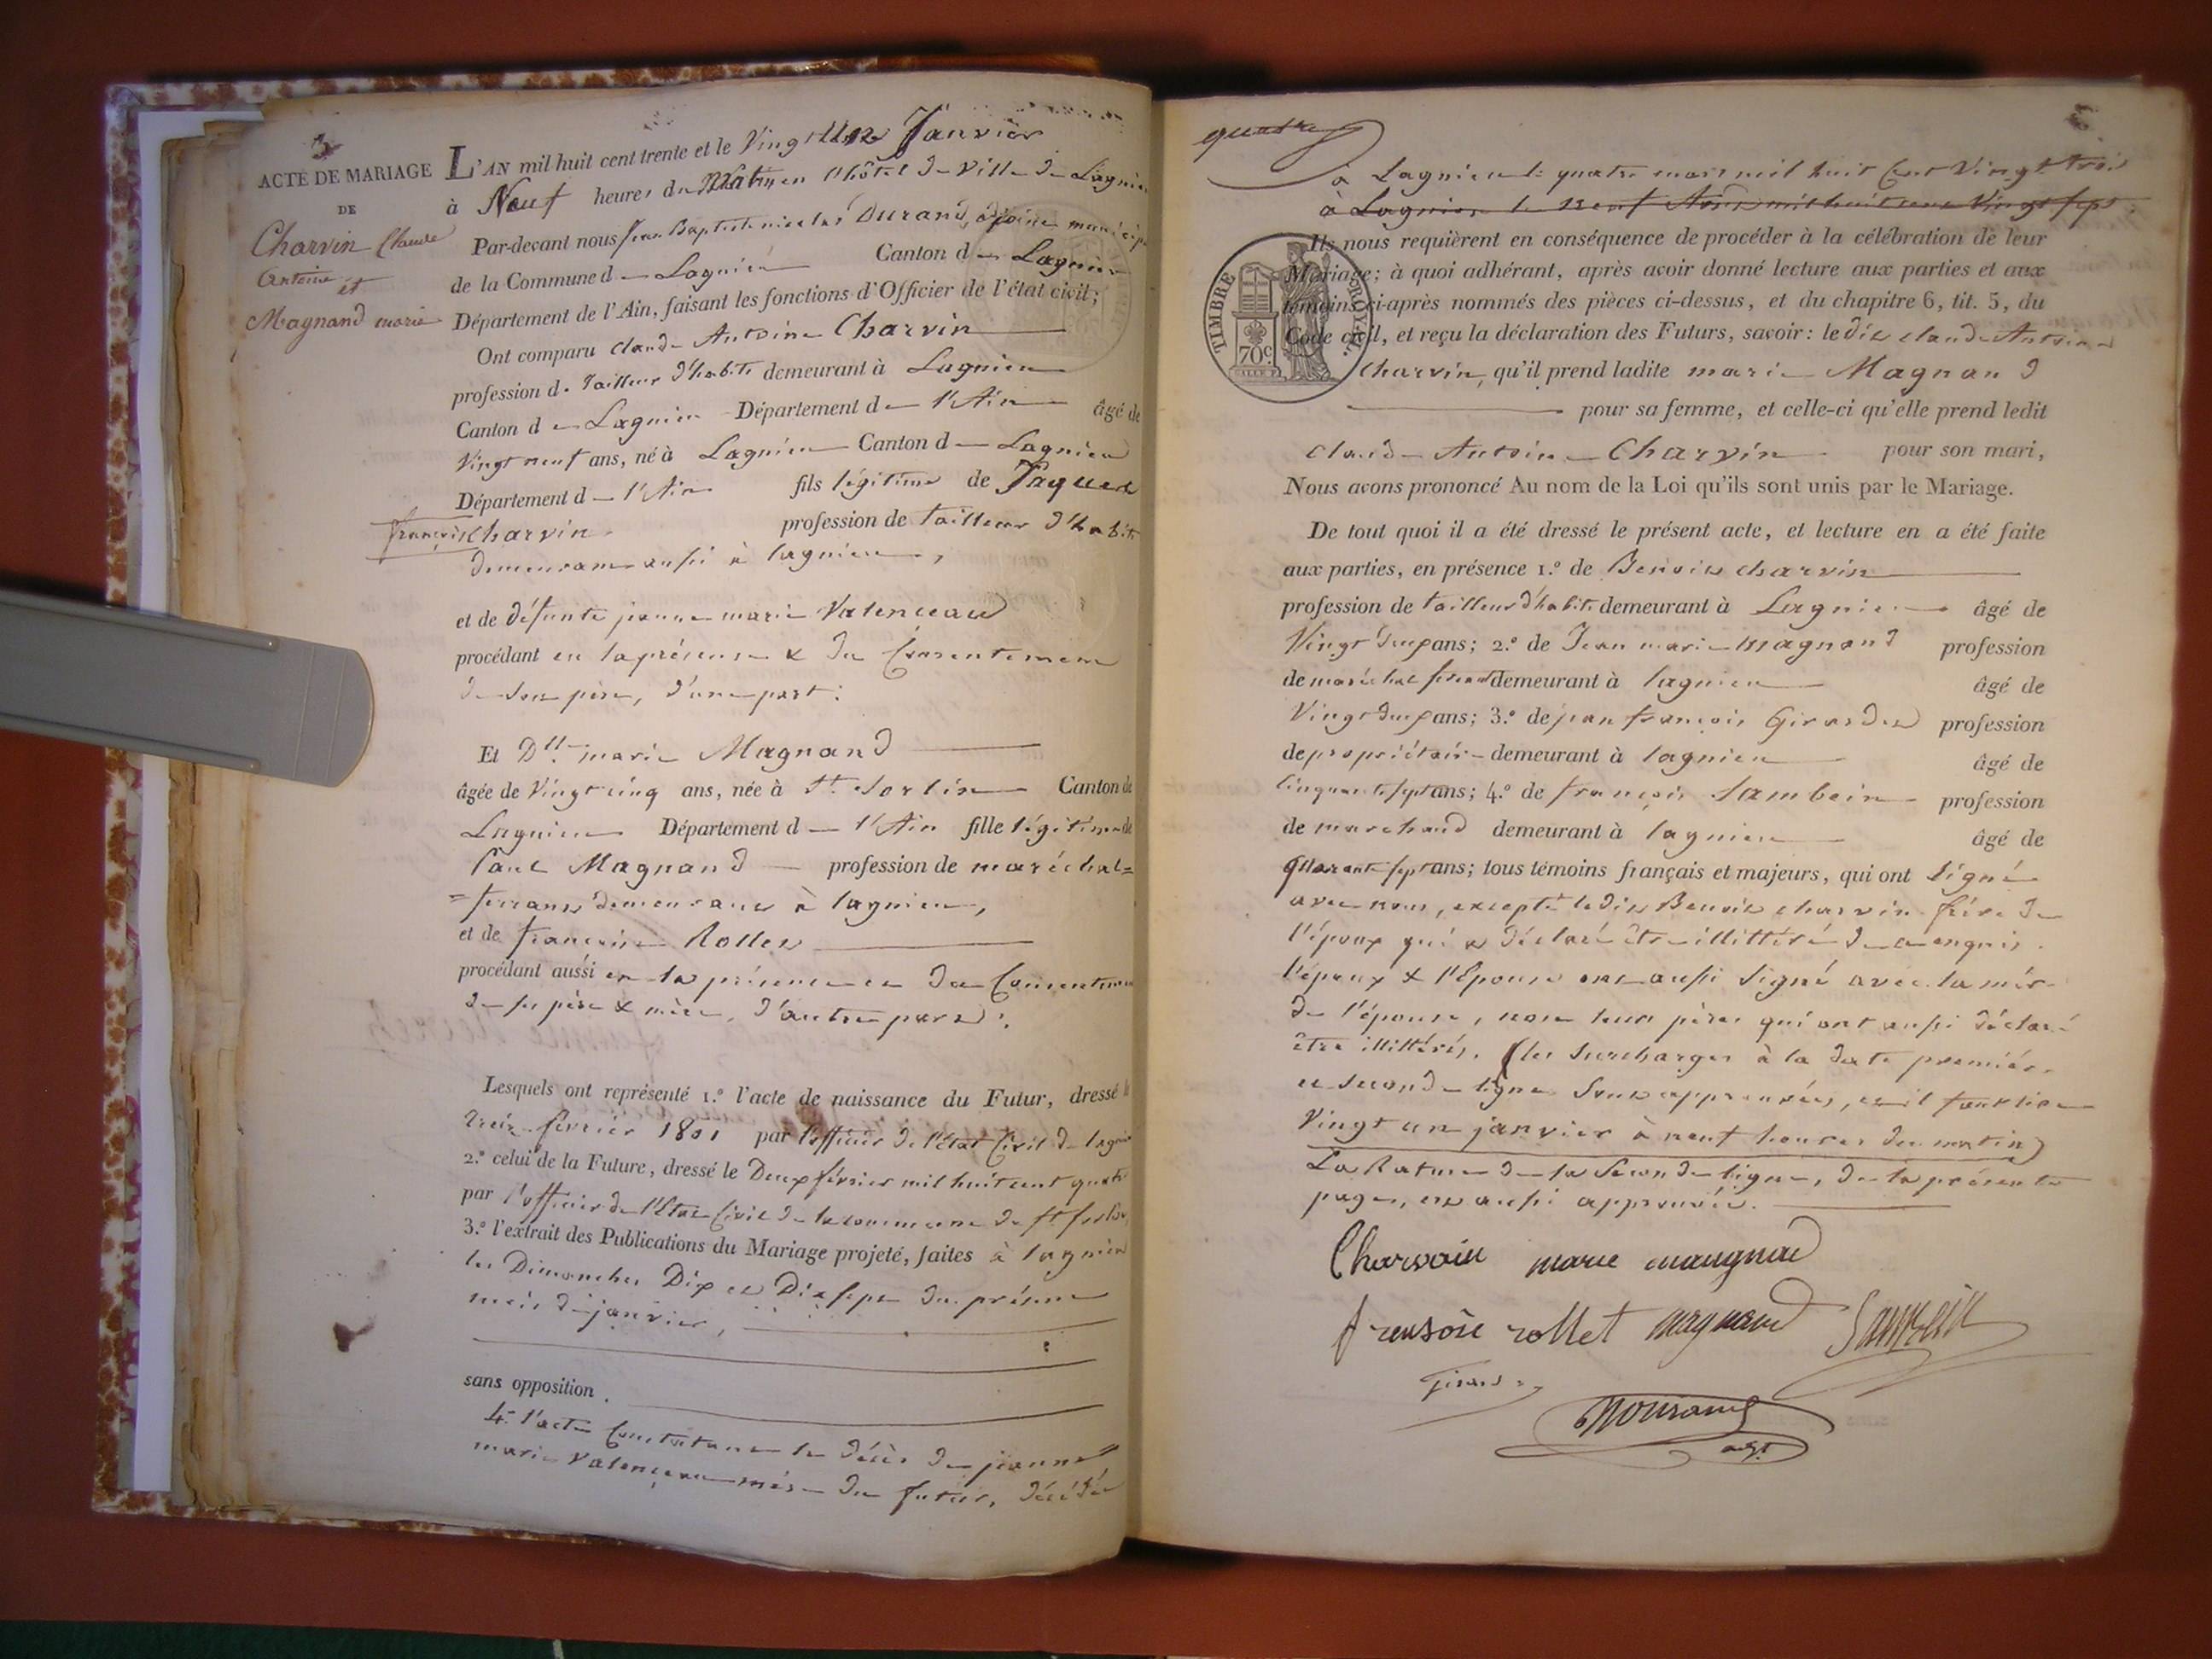 ACTE DE MARIAGE
DE
Charvin Claude
Antoine et
Magnand marie
L'AN mil huit cent trente et le Vingt Un Janvier
à Neuf heures du Matin en l'hôtel de Ville de Lagnieu
Par-devant nous Jean Baptiste nicolas Durand, adjoint municip
de la Commune d e Lagnieu Canton d e Lagnieu
Département de l'Ain, faisant les fonctions d'Officier de l'état civil;
Ont comparu claude Antoine Charvin
profession de Tailleur d'habits demeurant à Lagnieu
Canton d e Lagnieu Département d e l'Ain âgé de
Vingt neuf ans, né à Lagnieu Canton d e Lagnieu
Département d e l'Ain fils légitime de Jaques
françois Charvin profession de tailleur d'habits
demeurant aussi à lagnieu,
et de défunte jeanne marie Valenceau
procédant en la présence & du Consentement
de son père, d'une part:
Et Dlle marie Magnand
âgée de Vingt cinq ans, née à St. Sorlin Canton de
Lagnieu Département d e l'Ain fille légitime de
Paul Magnand profession de maréchal=
=ferrant demeurant à lagnieu,
et de françoise Rollet
procédant aussi en la présence et du Consentement
de ses père & mère, d'autre part:
Lesquels ont représenté 1.º l'acte de naissance du Futur, dressé le
treize février 1801 par l'officier de l'état Civil de lagnieu
2.º celui de la Future, dressé le Deux février mil huit cent quatre
par l'officier de l'Etat Civil de la commune de St Sorlin,
3.º l'extrait des Publications du Mariage projeté, faites à lagnieu
les Dimanches Dix et Dix sept du présent
mois de janvier,
sans opposition.
4.º l'acte Constatant le décès de jeanne
marie Valenceau mère du futur, décédée
quatre
à Lagnieu le quatre mars mil huit Cent Vingt trois
à Lagnieu le neuf Août mil huit cent Vingt sept.
TIMBRE ROYAL.
70c.
Ils nous requièrent en conséquence de procéder à la célébration de leur
Mariage; à quoi adhérant, après avoir donné lecture aux parties et aux
témoins ci-après nommés des pièces ci-dessus, et du chapitre 6, tit. 5, du
Code civil, et reçu la déclaration des Futurs, savoir: le dit claude Antoine
Charvin, qu'il prend ladite marie Magnand
pour sa femme, et celle-ci qu'elle prend ledit
claude Antoine Charvin pour son mari,
Nous avons prononcé Au nom de la Loi qu'ils sont unis par le Mariage.
De tout quoi il a été dressé le présent acte, et lecture en a été faite
aux parties, en présence 1.º de Benoit charvin
profession de tailleur d'habits demeurant à Lagnieu âgé de
Vingt deux ans; 2.º de Jean marie magnand profession
de maréchal ferrant demeurant à lagnieu âgé de
Vingt deux ans; 3.º de jean françois Girardet profession
de propriétaire demeurant à lagnieu âgé de
Cinquante sept ans; 4.º de françois Sambein profession
de marchand demeurant à lagnieu âgé de
quarante sept ans; tous témoins français et majeurs, qui ont signé
avec nous, excepté le dit Benoit charvin frère de
l'époux qui a déclaré être illittéré de ce enquis.
l'époux & l'Epouse ont aussi signé avec la mère
de l'épouse, non leurs pères qui ont aussi déclaré
être illittérés. (les surcharges à la date première
et seconde ligne sont approuvées, et il faut lire
Vingt un janvier à neuf heures du matin)
La Rature de la seconde ligne, de la présente
page, est aussi approuvée.
Charvain marie maugnad
frensoie rollet magnand Sambein
Girard
Durand
adjt.